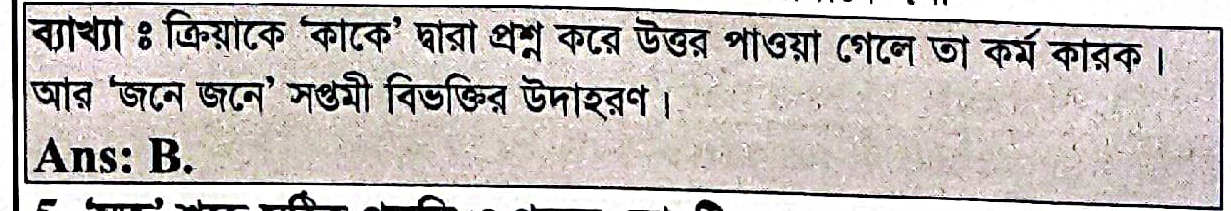 ব্যাখ্যা ঃ ক্রিয়াকে ‘কাকে’ দ্বারা প্রশ্ন করে উত্তর পাওয়া গেলে তা কর্ম কারক।
আর ‘জনে জনে’ সপ্তমী বিভক্তির উদাহরণ।
Ans: B.